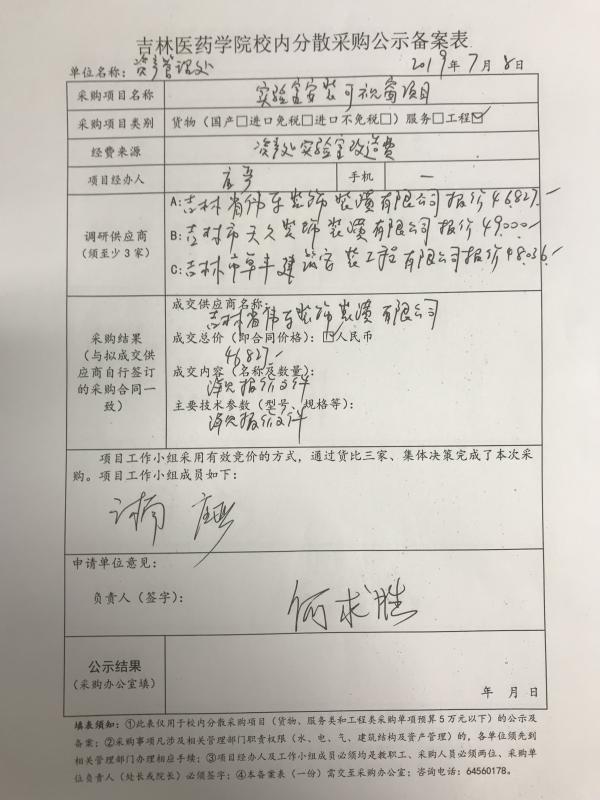 吉林医药学院校内分散采购公示备案表
单位名称：资产管理处 2019年7月8日
采购项目名称 实验室安装可视窗项目
采购项目类别 货物（国产□进口免税□进口不免税□）服务□工程☑
经费来源 资产处实验室改造费
项目经办人 手机 —
调研供应商
（须至少3家）
A:吉林省伟东装饰装潢有限公司报价46827.-
B:吉林市天久装饰装潢有限公司报价49000.-
C:吉林市阜丰建筑安装工程有限公司报价48036.-
采购结果
（与拟成交供
应商自行签订
的采购合同一
致）
成交供应商名称：
吉林省伟东装饰装潢有限公司
成交总价（即合同价格）：☑人民币
46827.-
成交内容（名称及数量）：
详见报价文件
主要技术参数（型号、规格等）：
详见报价文件
项目工作小组采用有效竞价的方式，通过货比三家、集体决策完成了本次采
购。项目工作小组成员如下：
申请单位意见：
负责人（签字）：
何求胜
公示结果
（采购办公室填）
年 月 日
填表须知：①此表仅用于校内分散采购项目（货物、服务类和工程类采购单项预算5万元以下）的公示及
备案；②采购事项凡涉及相关管理部门职责权限（水、电、气、建筑结构及资产管理）的，各单位须先到
相关管理部门办理相应手续；③项目经办人及工作小组成员必须均是教职工、采购人员必须两位、采购单
位负责人（处长或院长）必须签字；④本备案表（一份）需交至采购办公室；咨询电话：64560178。